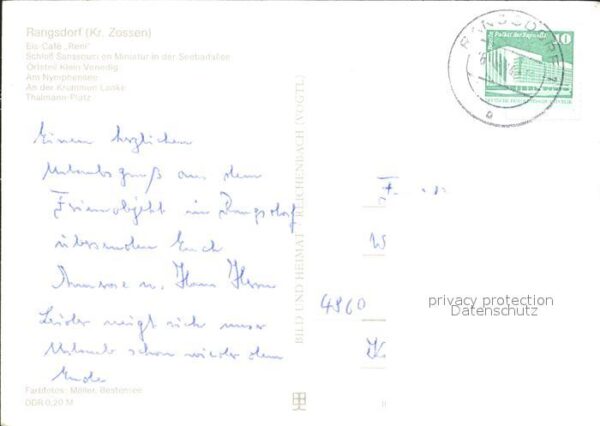 Rangsdorf (Kr. Zossen)
Eis-Café „Reni"
Schloß Sanssouci en Miniatur in der Seebadallee
Ortsteil Klein Venedig
Am Nymphensee
An der Krummen Lanke
Thälmann-Platz
RANGSDORF 1
Palast der Republik
10
DEUTSCHE DEMOKRATISCHE REPUBLIK
Einen herzlichen
Urlaubsgruß aus dem
Ferienobjekt in Rangsdorf
übersenden Euch
Annerose u. Hans
Leider neigt sich unser
Urlaub schon wieder dem
Ende
BILD UND HEIMAT / REICHENBACH (VOGTL)
F
W
4860
K
privacy protection
Datenschutz
Farbfotos: Möller, Bestensee
DDR 0,20 M